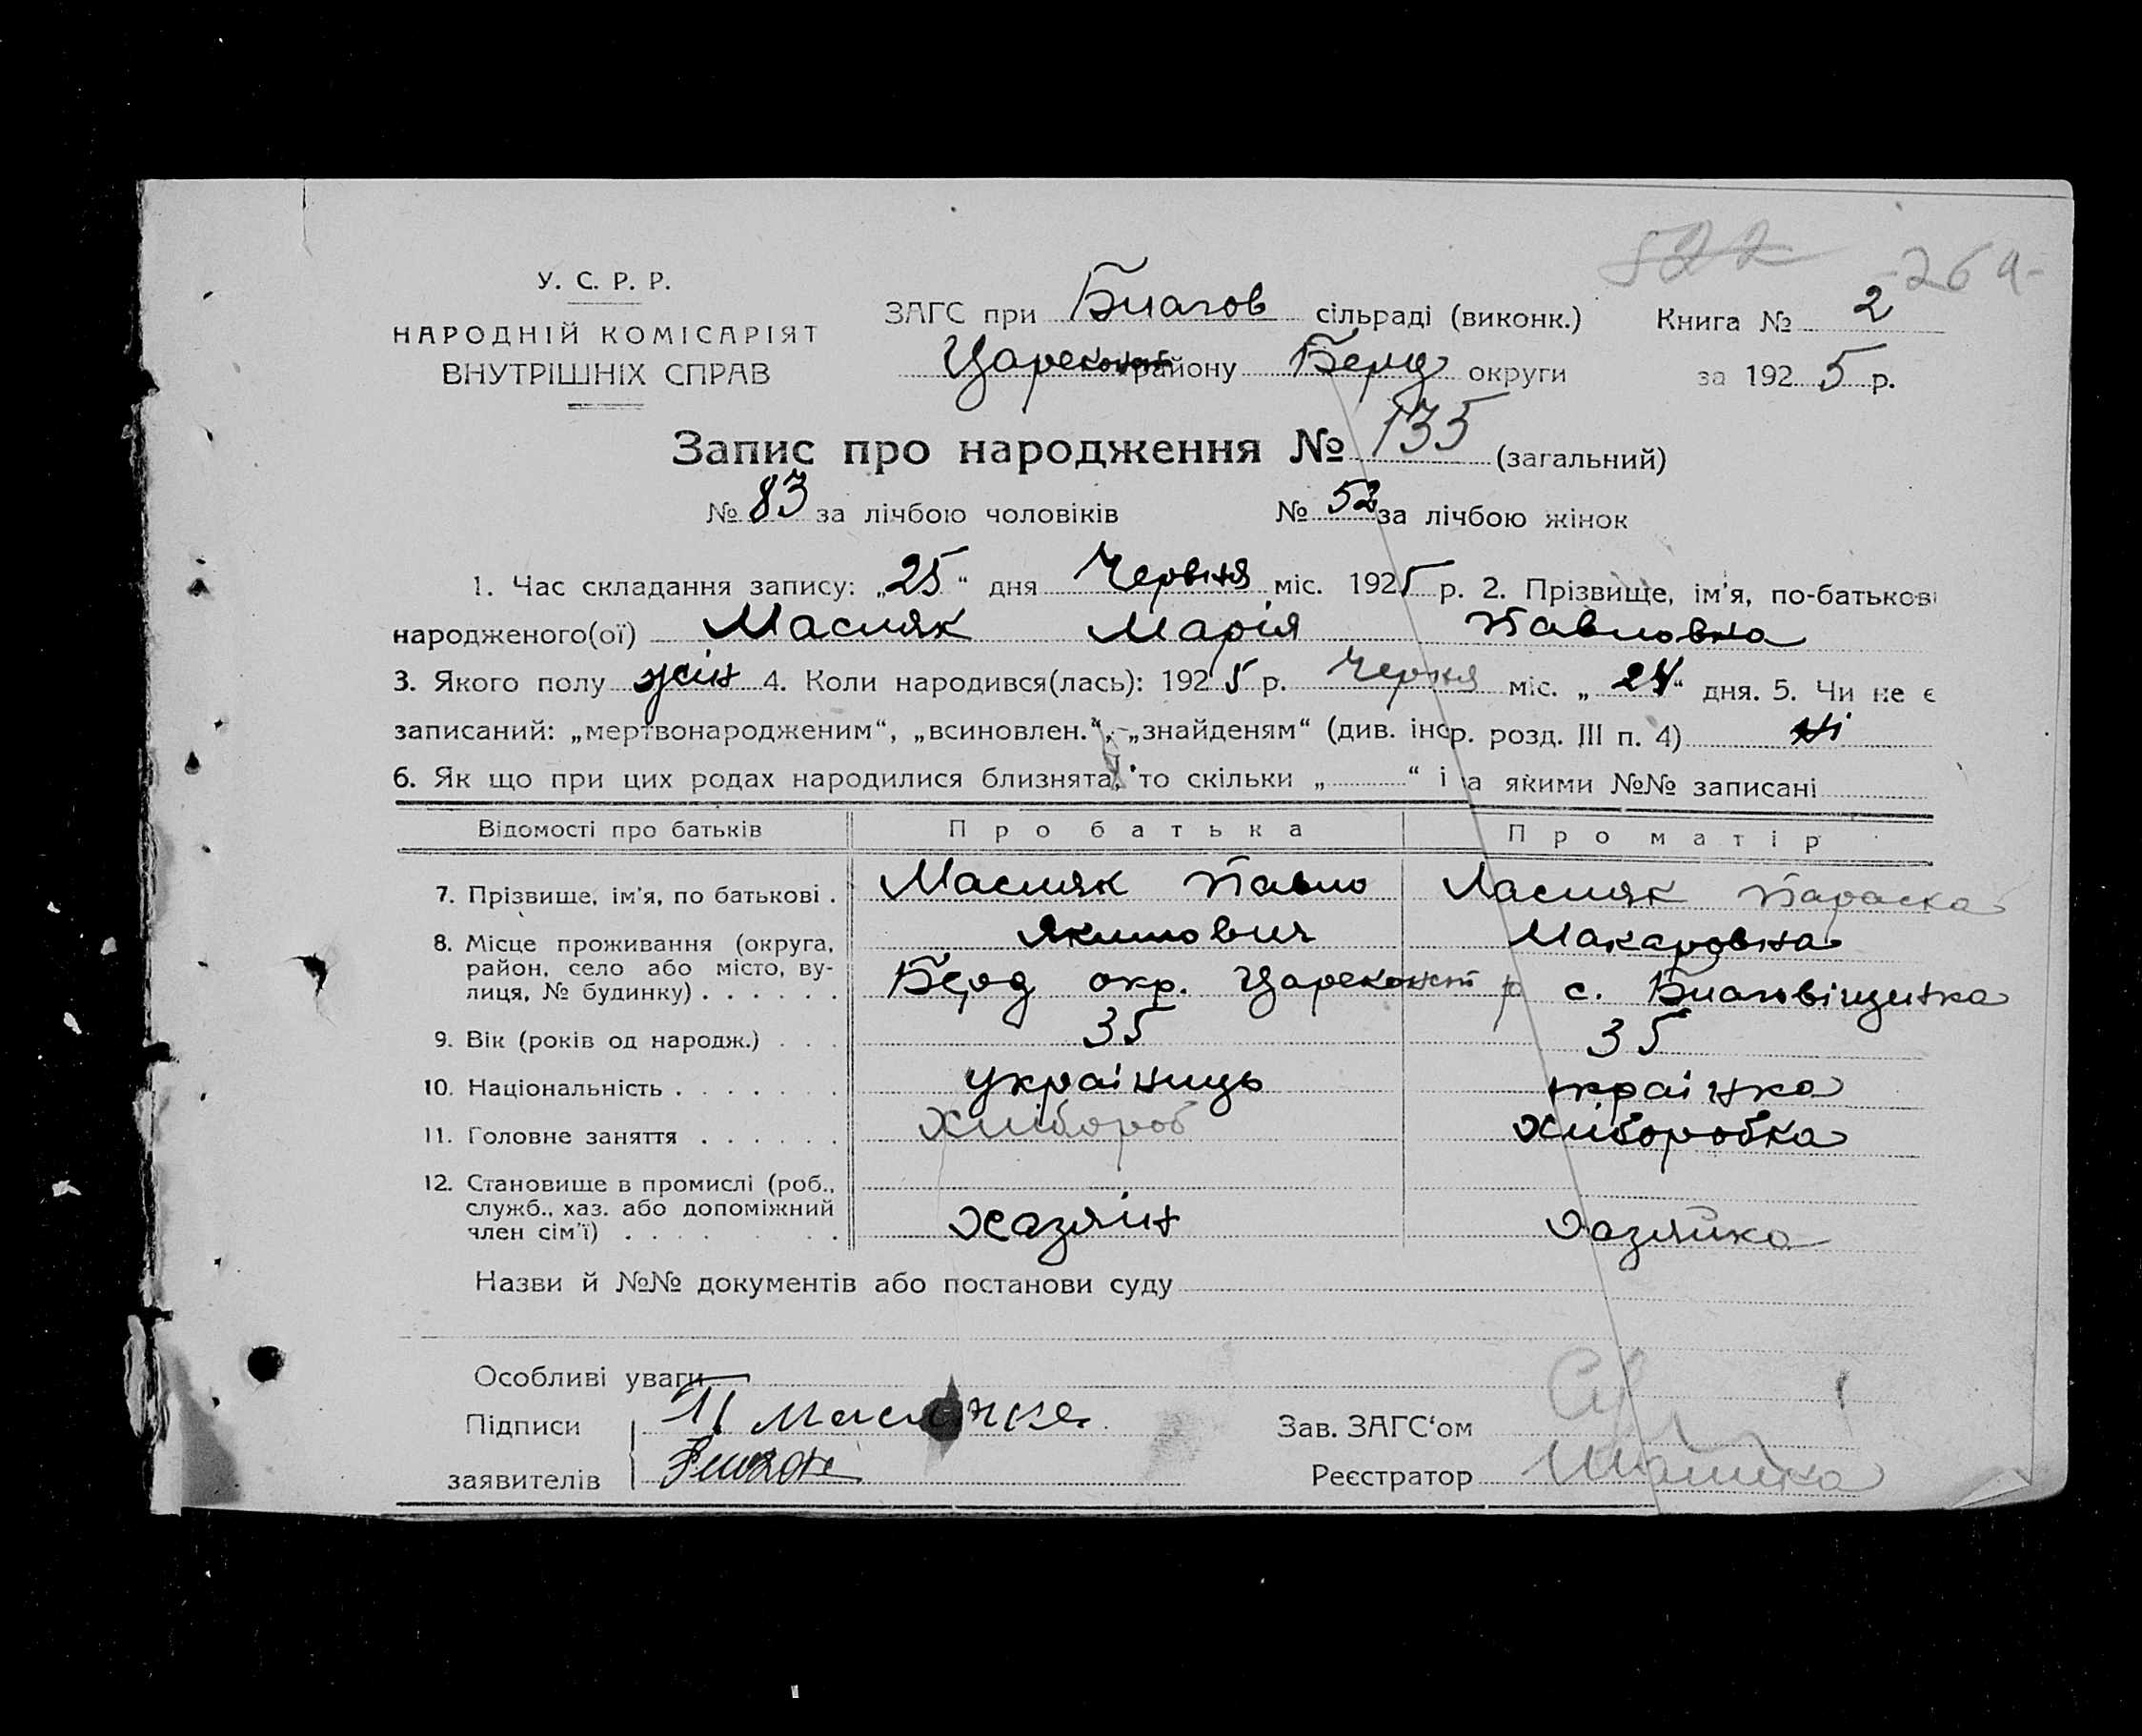 522 264-
У. С. Р. Р.
НАРОДНІЙ КОМІСАРІЯТ
ВНУТРІШНІХ СПРАВ
ЗАГС при Благов сільраді (виконк.) Книга № 2
Царекон району Берд округи за 1925 р.
Запис про народження № 135 (загальний)
№ 83 за лічбою чоловіків № 52 за лічбою жінок
1. Час складання запису: „25“ дня Червня міс. 1925 р. 2. Прізвище, ім'я, по-батькові
народженого(ої) Масляк Марія Павловна
3. Якого полу жін 4. Коли народився(лась): 1925 р. Червня міс. „24“ дня. 5. Чи не є
записаний: „мертвонародженим“, „всиновлен.“, „знайденям“ (див. інср. розд. III п. 4) Ні
6. Як що при цих родах народилися близнята, то скільки „ “ і за якими №№ записані
Відомості про батьків Про батька Про матір
7. Прізвище, ім'я, по батькові . Масляк Павло Масляк Параска
Якимович Макаровна
8. Місце проживання (округа, район, село або місто, вулиця, № будинку) . . . . . . Берд окр. Цареконст р. с. Благовіщенка
9. Вік (років од народж.) . . . 35 35
10. Національність . . . . . . . українць українка
11. Головне заняття . . . . . . Хлібороб Хліборобка
12. Становище в промислі (роб., служб., хаз. або допоміжний член сім'ї) . . . . Хазяїн Хазяйка
Назви й №№ документів або постанови суду
Особливі уваги
Підписи П Масл Зав. ЗАГС‘ом
заявителів Реєстратор